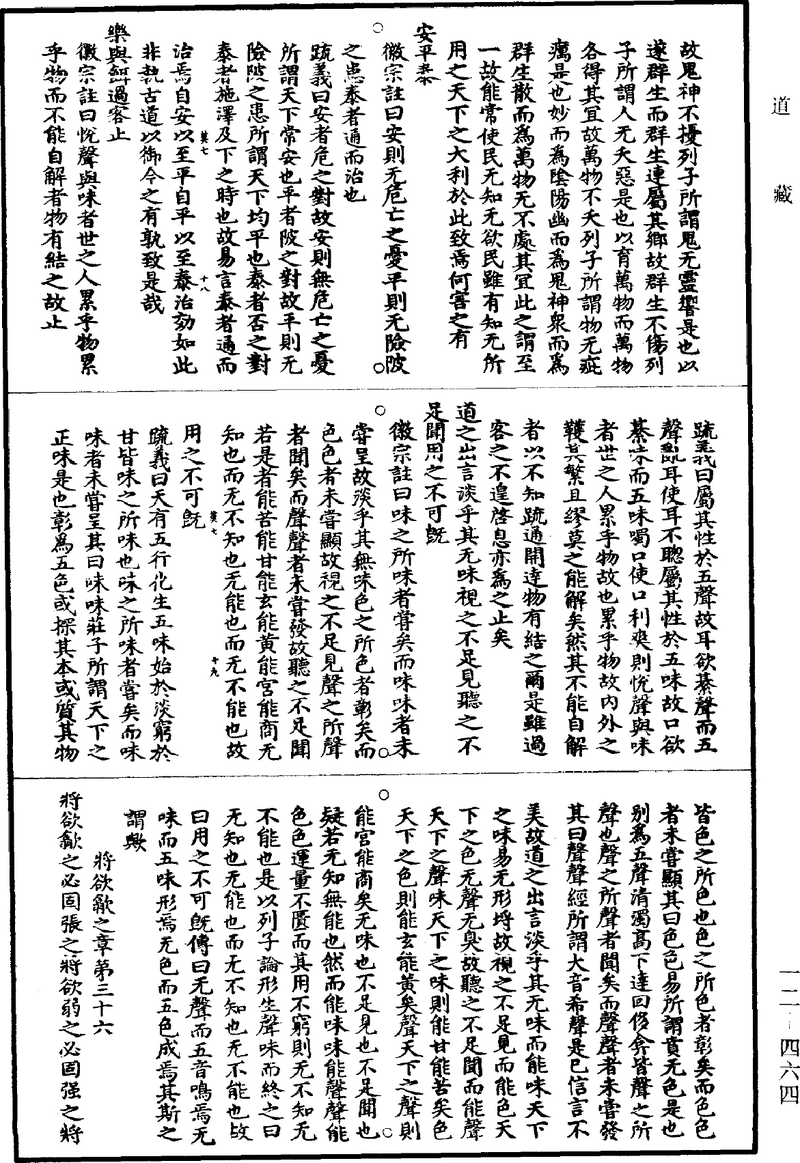 道藏
故鬼神不擾列子所謂鬼无靈響是也以
遂群生而群生連屬其鄉故群生不傷列
子所謂人无夭惡是也以育萬物而萬物
各得其宜故萬物不夭列子所謂物无疵
癘是也妙而為陰陽幽而為鬼神衆而為
群生散而為萬物无不處其宜此之謂至
一故能常使民无知无欲民雖有知无所
用之天下之大利於此致焉何害之有
安平泰
徽宗註曰安則无危亡之憂平則无險陂
之患泰者通而治也
疏義曰安者危之對故安則無危亡之憂
所謂天下常安也平者陂之對故平則无
險陂之患所謂天下均平也泰者否之對
泰者施澤及下之時也故易言泰者通而
莫七 十八
治焉自安以至平自平以至泰治効如此
非執古道以御今之有孰致是哉
樂與餌過客止
徽宗註曰悅聲與味者世之人累乎物累
乎物而不能自解者物有結之故止
疏義曰屬其性於五聲故耳欲綦聲而五
聲亂耳使耳不聰屬其性於五味故口欲
綦味而五味濁口使口利爽則悅聲與味
者世之人累乎物故也累乎物故內外之
韄其繁且繆莫之能解矣然其不能自解
者以不知疏通開達物有結之爾是雖過
客之不遑啓息亦為之止矣
道之出言淡乎其无味視之不足見聽之不
足聞用之不可旣
徽宗註曰味之所味者嘗矣而味味者未
嘗呈故淡乎其無味色之所色者彰矣而
色色者未嘗顯故視之不足見聲之所聲
者聞矣而聲聲者未嘗發故聽之不足聞
若是者能苦能甘能玄能黃能宮能商无
知也而无不知也无能也而无不能也故
莫七 十九
用之不可旣
疏義曰天有五行化生五味始於淡窮於
甘皆味之所味也味之所味者嘗矣而味
味者未嘗呈其曰味味莊子所謂天下之
正味是也彰為五色或探其本或質其物
皆色之所色也色之所色者彰矣而色色
者未嘗顯其曰色色易所謂賁无色是也
別為五聲清濁高下達回侈弇皆聲之所
聲也聲之所聲者聞矣而聲聲者未嘗發
其曰聲聲經所謂大音希聲是已信言不
美故道之出言淡乎其无味而能味天下
之味易无形埒故視之不足見而能色天
下之色无聲无臭故聽之不足聞而能聲
天下之聲味天下之味則能甘能苦矣色
天下之色則能玄能黃矣聲天下之聲則
能宮能商矣无味也不足見也不足聞也
疑若无知無能也然而能味味能聲聲能
色色運量不匱而其用不窮則无不知无
不能也是以列子論形生聲味而終之曰
无知也无能也而无不知也无不能也故
曰用之不可旣傳曰无聲而五音鳴焉无
味而五味形焉无色而五色成焉其斯之
謂歟
將欲歙之章第三十六
將欲歙之必固張之將欲弱之必固强之將
一二-四六四